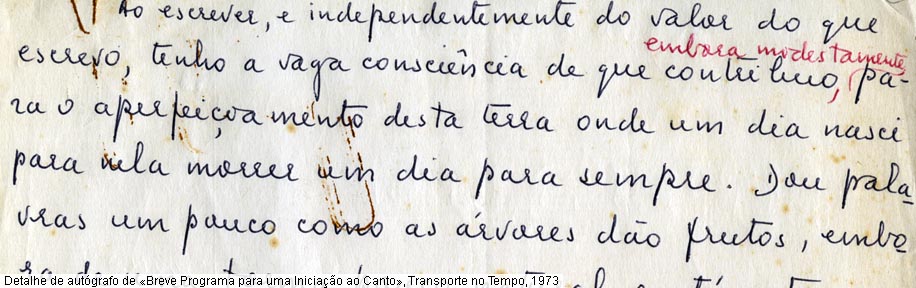 Ao escrever, e independentemente do valor do que
embora modestamente,
escrevo, tenho a vaga consciência de que contribuo, pa-
ra o aperfeiçoamento desta terra onde um dia nasci
para nela morrer um dia para sempre. Dou pala-
vras um pouco como as árvores dão frutos, embo-
Detalhe de autógrafo de «Breve Programa para uma Iniciação ao Canto», Transporte no Tempo, 1973